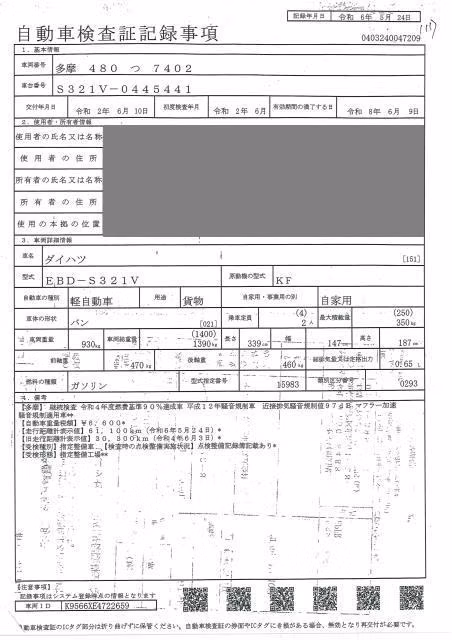 記録年月日 令和 6年 5月 24日
自動車検査証記録事項
0403240047209
1.基本情報
車両番号 多摩 480 つ 7402
車台番号 S321V-0445441
交付年月日 令和 2年 6月 10日 初度検査年月 令和 2年 6月 有効期間の満了する日 令和 8年 6月 9日
2.使用者・所有者情報
使用者の氏名又は名称
使用者の住所
所有者の氏名又は名称
所有者の住所
使用の本拠の位置
3.車両詳細情報
車名 ダイハツ [151]
型式 EBD-S321V 原動機の型式 KF
自動車の種別 軽自動車 用途 貨物 自家用・事業用の別 自家用
車体の形状 バン [021] 乗車定員 (4) 2人 最大積載量 (250) 350kg
車両重量 930kg 車両総重量 (1400) 1390kg 長さ 339cm 幅 147cm 高さ 187cm
前軸重 470kg 後軸重 460kg 総排気量又は定格出力 0.65L
燃料の種類 ガソリン 型式指定番号 15983 類別区分番号 0293
4.備考
【多摩】 継続検査 令和4年度燃費基準90%達成車 平成12年騒音規制車 近接排気騒音規制値97dB マフラー加速
騒音規制適用車*
【自動車重量税額】¥6,600*
【走行距離計表示値】61,100km(令和6年5月24日)*
【旧走行距離計表示値】30,300km(令和4年6月3日)*
【受検種別】指定整備車 【検査時の点検整備実施状況】点検整備記録簿記載あり*
【受検形態】指定整備工場**
【注意事項】
記録事項はシステム登録時点の情報となります
車両ID K9566XE4722659
自動車検査証のICタグ部分は折り曲げずに保管ください。自動車検査証の券面やICタグに汚損がある場合、無効となり再交付が必要です。